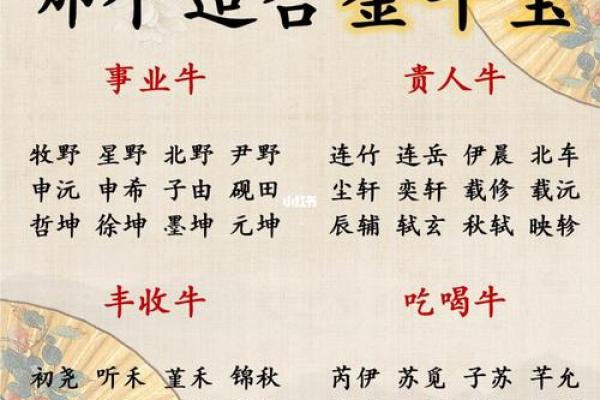 事业牛
牧野 星野 北野 尹野
申沅 申希 子由 砚田
哲坤 徐坤 墨坤 元坤
贵人牛
连竹 连岳 伊晨 北车
尘轩 奕轩 载修 载沅
辰辅 轼玄 秋轼 映轸
小红书
丰收牛
初尧 听禾 堇禾 锦秋
吃喝牛
芮伊 苏觅 子苏 芊允